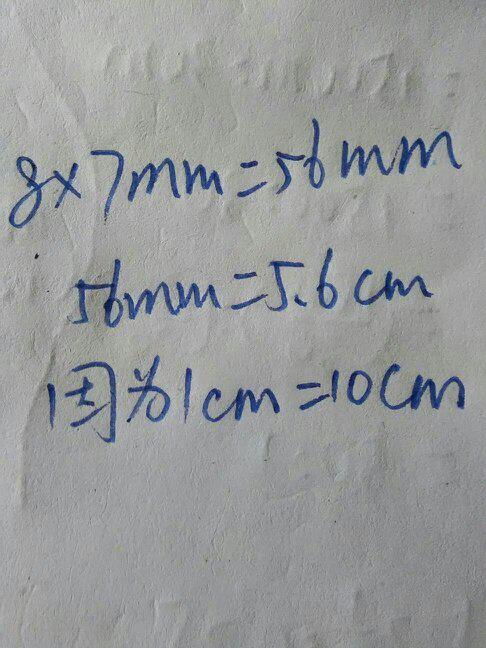 8×7mm=56mm
56mm=5.6cm
因为1cm=10cm